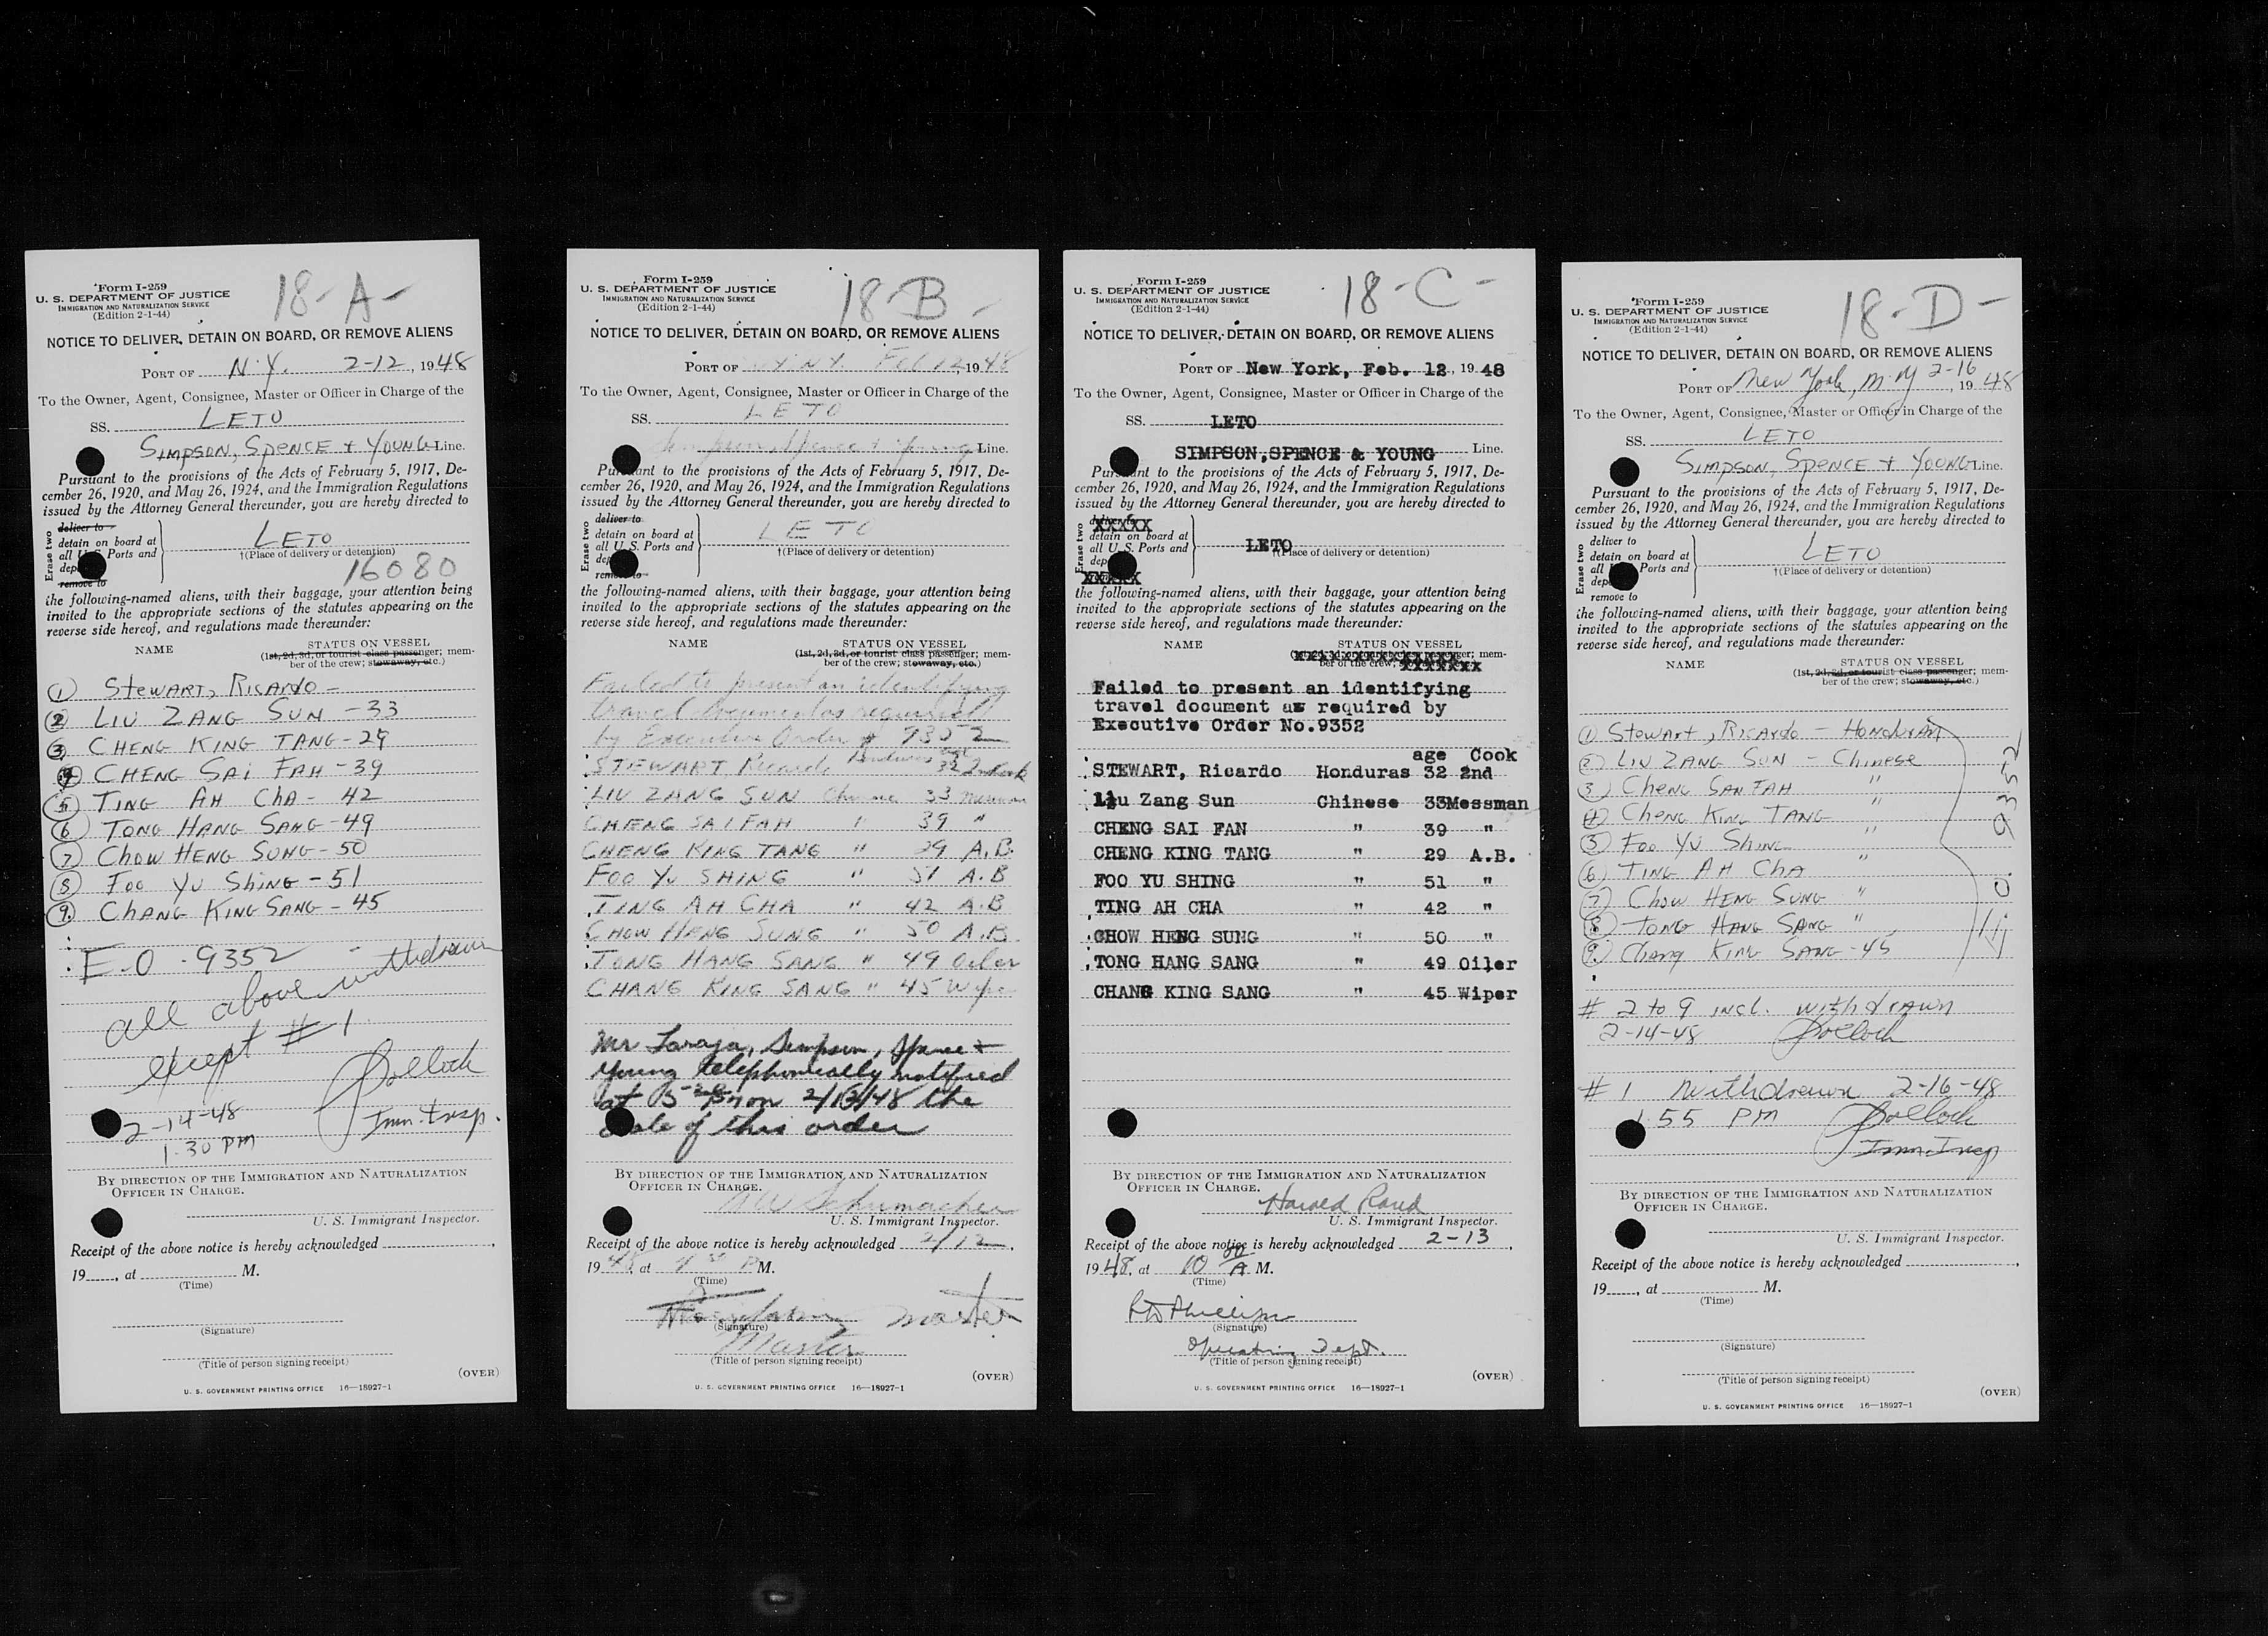 Form I-259
U. S. DEPARTMENT OF JUSTICE
IMMIGRATION AND NATURALIZATION SERVICE
(Edition 2-1-44)
18-A-
NOTICE TO DELIVER, DETAIN ON BOARD, OR REMOVE ALIENS
PORT OF N.Y. 2-12, 1948
To the Owner, Agent, Consignee, Master or Officer in Charge of the
SS. LETO
SIMPSON, SPENCE + YOUNG Line.
Pursuant to the provisions of the Acts of February 5, 1917, De-
cember 26, 1920, and May 26, 1924, and the Immigration Regulations
issued by the Attorney General thereunder, you are hereby directed to
Erase two
deliver to
detain on board at
all U.S. Ports and
remove to
LETO
†(Place of delivery or detention)
16080
the following-named aliens, with their baggage, your attention being
invited to the appropriate sections of the statutes appearing on the
reverse side hereof, and regulations made thereunder:
NAME
STATUS ON VESSEL
(1st, 2d, 3d, or tourist class passenger; mem-
ber of the crew; stowaway, etc.)
1 STEWART, RICARDO -
2 LIU ZANG SUN - 33
3 CHENG KING TANG - 29
4 CHENG SAI FAH - 39
5 TING AH CHA - 42
6 TONG HANG SANG - 49
7 CHOW HENG SUNG - 50
8 FOO YU SHING - 51
9. CHANG KING SANG - 45
E.O. 9352 -
all above withdrawn
except # 1
2-14-48
1.30 PM
Imm. Insp.
BY DIRECTION OF THE IMMIGRATION AND NATURALIZATION
OFFICER IN CHARGE.
U. S. Immigrant Inspector.
Receipt of the above notice is hereby acknowledged
19____, at ____ M.
(Time)
(Signature)
(Title of person signing receipt)
(OVER)
U. S. GOVERNMENT PRINTING OFFICE 16—18927-1
Form I-259
U. S. DEPARTMENT OF JUSTICE
IMMIGRATION AND NATURALIZATION SERVICE
(Edition 2-1-44)
18-B-
NOTICE TO DELIVER, DETAIN ON BOARD, OR REMOVE ALIENS
PORT OF N.Y. N.Y. Feb 12 1948
To the Owner, Agent, Consignee, Master or Officer in Charge of the
SS. LETO
Simpson, Spence + Young Line.
Pursuant to the provisions of the Acts of February 5, 1917, De-
cember 26, 1920, and May 26, 1924, and the Immigration Regulations
issued by the Attorney General thereunder, you are hereby directed to
Erase two
deliver to
detain on board at
all U.S. Ports and
remove to
LETO
†(Place of delivery or detention)
the following-named aliens, with their baggage, your attention being
invited to the appropriate sections of the statutes appearing on the
reverse side hereof, and regulations made thereunder:
NAME
STATUS ON VESSEL
(1st, 2d, 3d, or tourist class passenger; mem-
ber of the crew; stowaway, etc.)
Failed to present an identifying
travel document as required
by Executive Order # 9352
STEWART Ricardo Honduras age 32 2nd Cook
LIU ZANG SUN Chinese 33 Messman
CHENG SAI FAH " 39 "
CHENG KING TANG " 29 A.B.
FOO YU SHING " 51 A.B
TING AH CHA " 42 A.B
CHOW HENG SUNG " 50 A.B.
TONG HANG SANG " 49 Oiler
CHANG KING SANG " 45 Wiper
Mr Simpson, Spence +
Young telephonically notified
at on 2/13/48 the
date of this order
BY DIRECTION OF THE IMMIGRATION AND NATURALIZATION
OFFICER IN CHARGE.
Schumacher
U. S. Immigrant Inspector.
Receipt of the above notice is hereby acknowledged 2/12,
1948, at P M.
(Time)
Master
(Signature)
Master
(Title of person signing receipt)
(OVER)
U. S. GOVERNMENT PRINTING OFFICE 16—18927-1
Form I-259
U. S. DEPARTMENT OF JUSTICE
IMMIGRATION AND NATURALIZATION SERVICE
(Edition 2-1-44)
18-C-
NOTICE TO DELIVER, DETAIN ON BOARD, OR REMOVE ALIENS
PORT OF New York, Feb. 12, 1948
To the Owner, Agent, Consignee, Master or Officer in Charge of the
SS. LETO
SIMPSON,SPENCE & YOUNG Line.
Pursuant to the provisions of the Acts of February 5, 1917, De-
cember 26, 1920, and May 26, 1924, and the Immigration Regulations
issued by the Attorney General thereunder, you are hereby directed to
Erase two
XXXXX
detain on board at
all U.S. Ports and
XXXXX
LETO
†(Place of delivery or detention)
the following-named aliens, with their baggage, your attention being
invited to the appropriate sections of the statutes appearing on the
reverse side hereof, and regulations made thereunder:
NAME
STATUS ON VESSEL
mem-
ber of the crew; XXXXXXX
Failed to present an identifying
travel document as required by
Executive Order No.9352
age Cook
STEWART, Ricardo Honduras 32 2nd
Liu Zang Sun Chinese 33Messman
CHENG SAI FAN " 39 "
CHENG KING TANG " 29 A.B.
FOO YU SHING " 51 "
TING AH CHA " 42 "
CHOW HENG SUNG " 50 "
TONG HANG SANG " 49 Oiler
CHANG KING SANG " 45 Wiper
BY DIRECTION OF THE IMMIGRATION AND NATURALIZATION
OFFICER IN CHARGE.
Harold Rand
U. S. Immigrant Inspector.
Receipt of the above notice is hereby acknowledged 2-13,
1948, at 10 20 A. M.
(Time)
(Signature)
Operating Dept.
(Title of person signing receipt)
(OVER)
U. S. GOVERNMENT PRINTING OFFICE 16—18927-1
Form I-259
U. S. DEPARTMENT OF JUSTICE
IMMIGRATION AND NATURALIZATION SERVICE
(Edition 2-1-44)
18-D-
NOTICE TO DELIVER, DETAIN ON BOARD, OR REMOVE ALIENS
PORT OF New York, N.Y 2-16, 1948
To the Owner, Agent, Consignee, Master or Officer in Charge of the
SS. LETO
SIMPSON, SPENCE + YOUNG Line.
Pursuant to the provisions of the Acts of February 5, 1917, De-
cember 26, 1920, and May 26, 1924, and the Immigration Regulations
issued by the Attorney General thereunder, you are hereby directed to
Erase two
deliver to
detain on board at
all Ports and
remove to
LETO
†(Place of delivery or detention)
the following-named aliens, with their baggage, your attention being
invited to the appropriate sections of the statutes appearing on the
reverse side hereof, and regulations made thereunder:
NAME
STATUS ON VESSEL
(1st, 2d, 3d, or tourist class passenger; mem-
ber of the crew; stowaway, etc.)
1 Stewart, Ricardo - Honduran
2 LIU ZANG SUN - Chinese
3 Cheng San FAH "
4 Cheng KING TANG "
5 Foo YU Shing "
6 TING AH CHA "
7 Chow HENG SUNG "
8 TONG HANG SANG "
9. Chang KING SANG - 45
E.O. 9352
# 2 to 9 incl. withdrawn
2-14-48
# 1 Withdrawn 2-16-48
1 55 PM
Imm. Insp
BY DIRECTION OF THE IMMIGRATION AND NATURALIZATION
OFFICER IN CHARGE.
U. S. Immigrant Inspector.
Receipt of the above notice is hereby acknowledged
19____, at ____ M.
(Time)
(Signature)
(Title of person signing receipt)
(OVER)
U. S. GOVERNMENT PRINTING OFFICE 16—18927-1